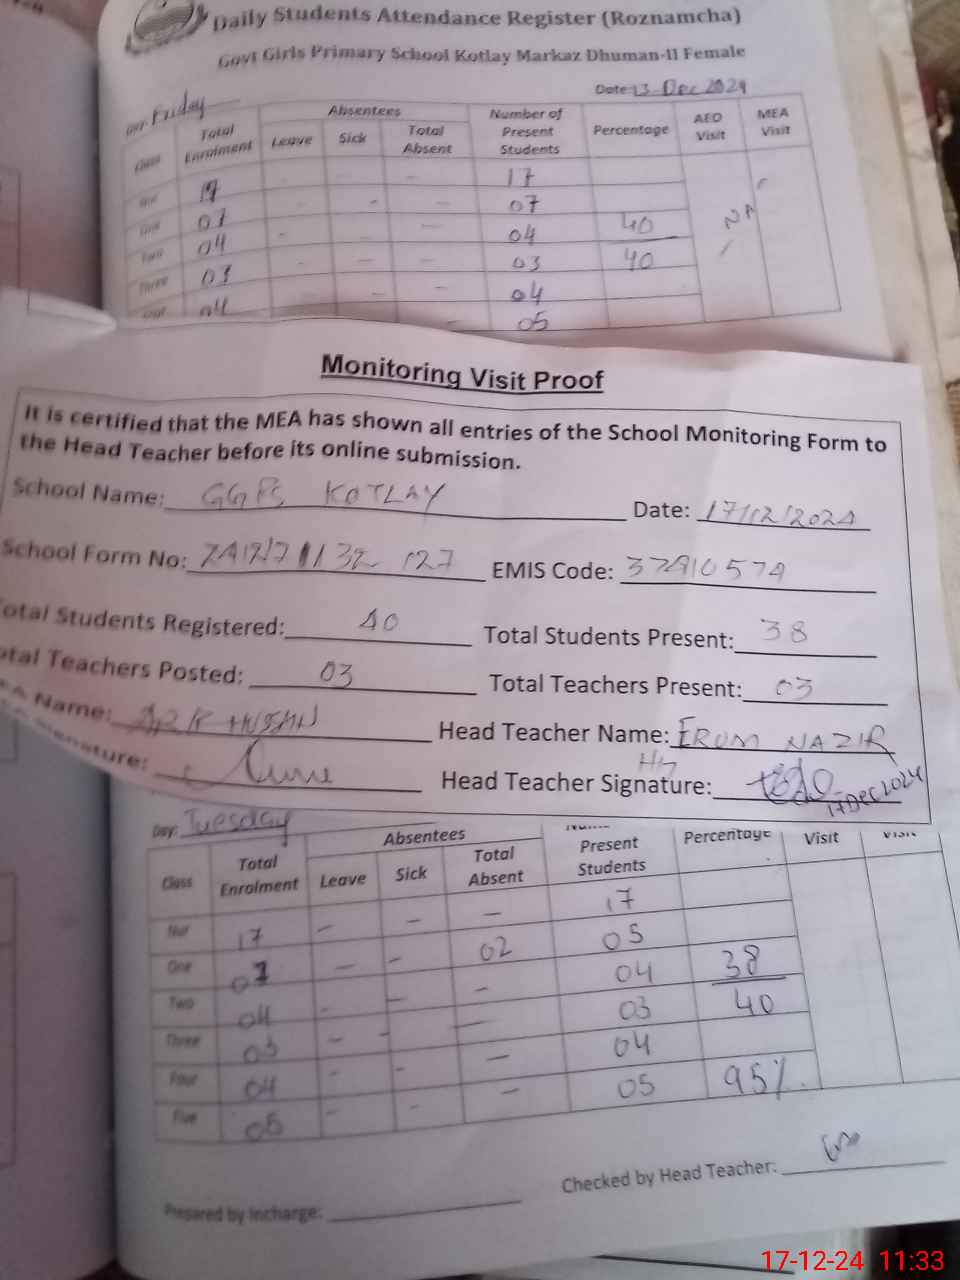 Daily Students Attendance Register (Roznamcha)
Govt Girls Primary School Kotlay Markaz Dhuman-II Female
Day: Friday Date: 13 Dec 2024
Class Total Enrolment Absentees Number of Present Students Percentage AEO Visit MEA Visit
Leave Sick Total Absent
Nur 17 - 17
One 07 - - 07
Two 04 - - 04 40
Three 03 - - - 03 40
Four 04 - - 04
- 05
NA
Monitoring Visit Proof
It is certified that the MEA has shown all entries of the School Monitoring Form to
the Head Teacher before its online submission.
School Name: GGPS KOTLAY Date: 17/12/2024
School Form No: EMIS Code: 37210574
Total Students Registered: 40 Total Students Present: 38
Total Teachers Posted: 03 Total Teachers Present: 03
Name: Head Teacher Name: ERUM NAZIR
Signature: Head Teacher Signature:
17 Dec 2024
Day: Tuesday
Class Total Enrolment Absentees Present Students Percentage Visit Visit
Leave Sick Total Absent
Nur 17 - - - 17
One 07 - - 02 05
Two 04 - - - 04 38
Three 03 - - - 03 40
Four 04 - - - 04
Five 05 - - - 05 95%
Checked by Head Teacher:
Prepared by Incharge:
17-12-24 11:33